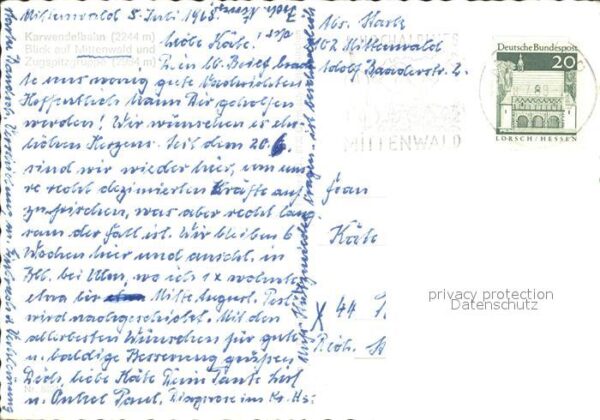 Mittenwald 5. Juli 1968
Karwendelbahn (2244 m)
Blick auf Mittenwald und
Zugspitzgruppe (2964 m)
Liebe Käte!
Dein lb. Brief brach
te uns wenig gute Nachrichten
Hoffentlich kann Dir geholfen
werden! Wir wünschen es ehr-
lichen Herzens. Seit dem 20.6.
sind wir wieder hier, um uns
re recht dezimierten Kräfte auf
zufrischen, was aber recht lang
sam der Fall ist. Wir bleiben 6
Wochen hier und anschl. in
bei Ulm, wo ich 1x wohnte
etwa bis Mitte August. Post
wird nachgeschickt. Mit den
allerbesten Wünschen für gute
u. baldige Besserung grüßen
Dich, liebe Käte Deine Tante
u. Onkel Paul.
Abs. Stark
8102 Mittenwald
Adolf Baaderstr. 2
MITTENWALD
Deutsche Bundespost
20
LORSCH/HESSEN
Frau
Käte
x 44
privacy protection
Datenschutz